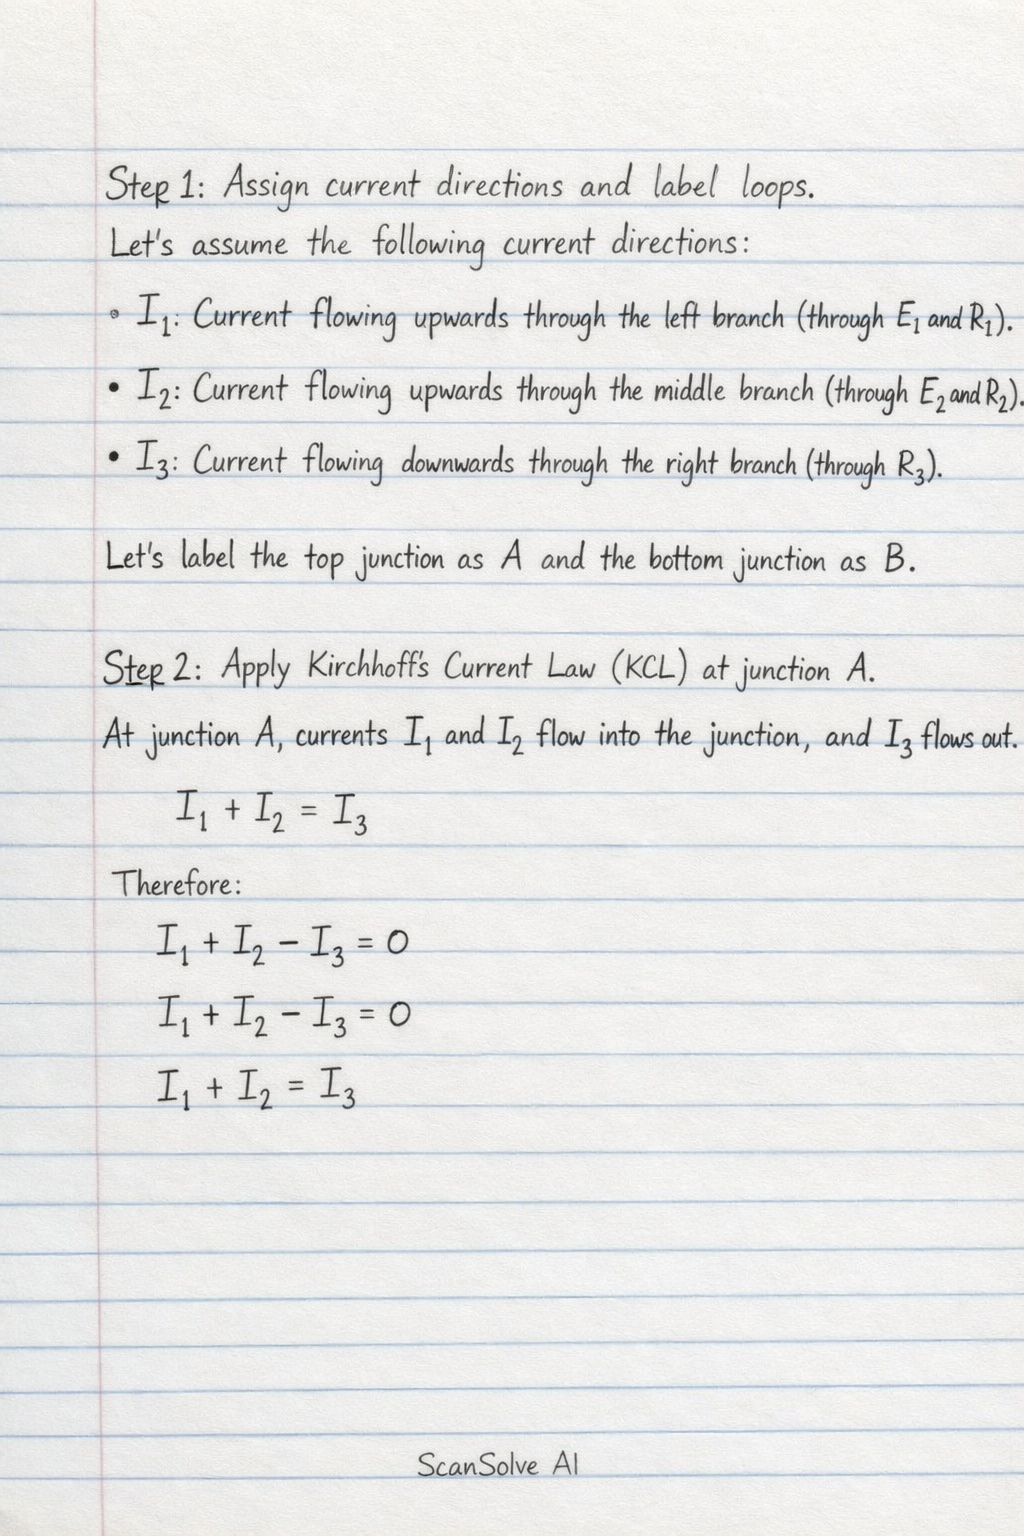 Step 1: Assign current directions and label loops.
Let's assume the following current directions:
• I₁: Current flowing upwards through the left branch (through E₁ and R₁).
• I₂: Current flowing upwards through the middle branch (through E₂ and R₂).
• I₃: Current flowing downwards through the right branch (through R₃).
Let's label the top junction as A and the bottom junction as B.
Step 2: Apply Kirchhoff's Current Law (KCL) at junction A.
At junction A, currents I₁ and I₂ flow into the junction, and I₃ flows out.
I₁ + I₂ = I₃
Therefore:
I₁ + I₂ − I₃ = 0
I₁ + I₂ − I₃ = 0
I₁ + I₂ = I₃
ScanSolve AI